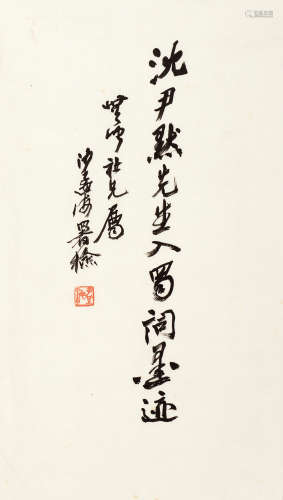 沈尹默先生入蜀词墨迹
无闻社兄属
沙孟海署检